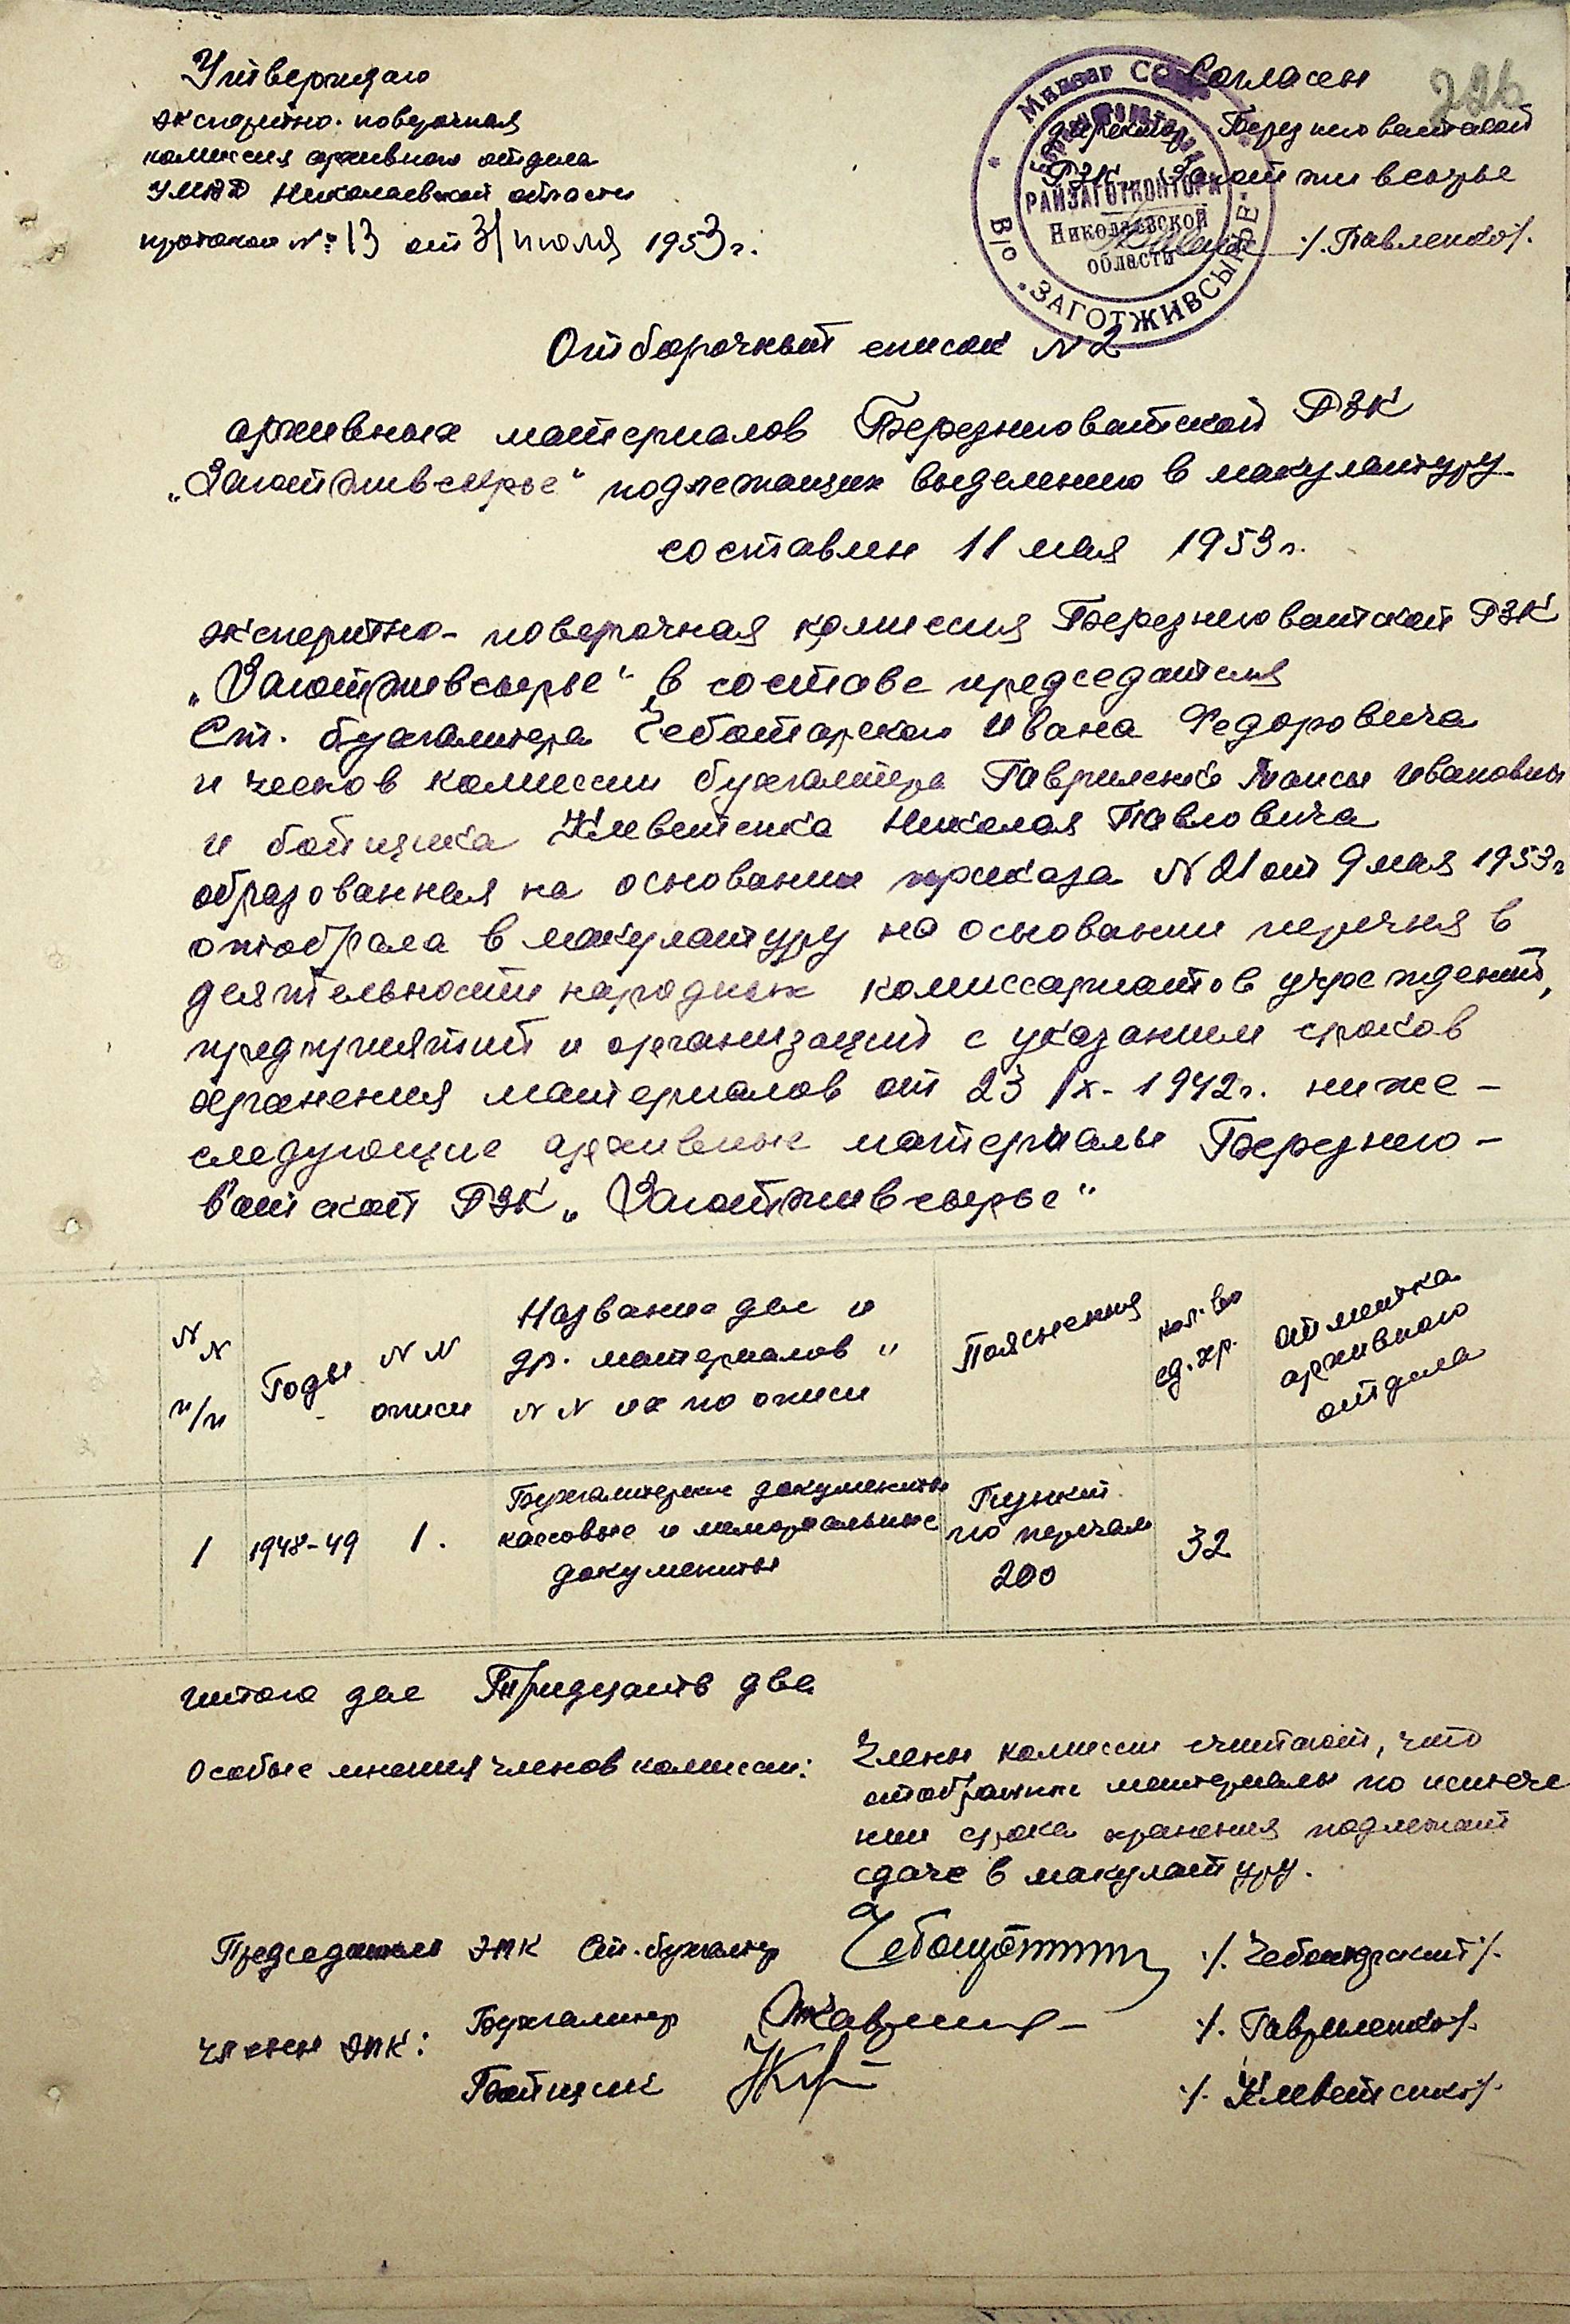 Утверждаю
экспертно-поверочная
комиссия архивного отдела
УМВД Николаевской области
протокол №: 13 от 31 июля 1953 г.
Согласен
226
директор Березниговатской
РЗК „Заготживсырье
/.Павленко/.
В/о „ЗАГОТЖИВСЫРЬЕ"
РАЙЗАГОТКОНТОРА
Николаевской
области
Отборочный список N 2
архивных материалов Березниговатской РЗК
„Заготживсырье" подлежащих выделению в макулатуру
составлен 11 мая 1953 г.
экспертно-поверочная комиссия Березниговатской РЗК
„Заготживсырье" в составе председателя
Ст. бухгалтера Чеботарского Ивана Федоровича
и членов комиссии бухгалтера Гавриленко Таисы Ивановны
и бойщика Кливетенка Николая Павловича
образованная на основании приказа N 21 от 9 мая 1953 г
отобрала в макулатуру на основании перечня в
деятельности народных комиссариатов учреждений,
предприятий и организаций с указанием сроков
хранения материалов от 23 IX-1942 г. ниже-
следующие архивные материалы Березниго-
ватской РЗК „Заготживсырье"
N N п/п
Годы
N N описи
Название дел и
др. материалов и
N N их по описи
Пояснения
кол-во ед. хр.
отметка архивного отдела
1
1948-49
1.
Бухгалтерские документы
кассовые и мемориальные
документы
Пункт
по перечню
200
32
итого дел Тридцать два
Особые мнения членов комиссии:
Члены комиссии считают, что
отобранные материалы по истече
нии срока хранения подлежат
сдаче в макулатуру.
Председатель ЭПК Ст. бухгалтер /. Чеботарский /.
члены ЭПК: Бухгалтер /. Гавриленко/.
Бойщик /. Кливетенко/.